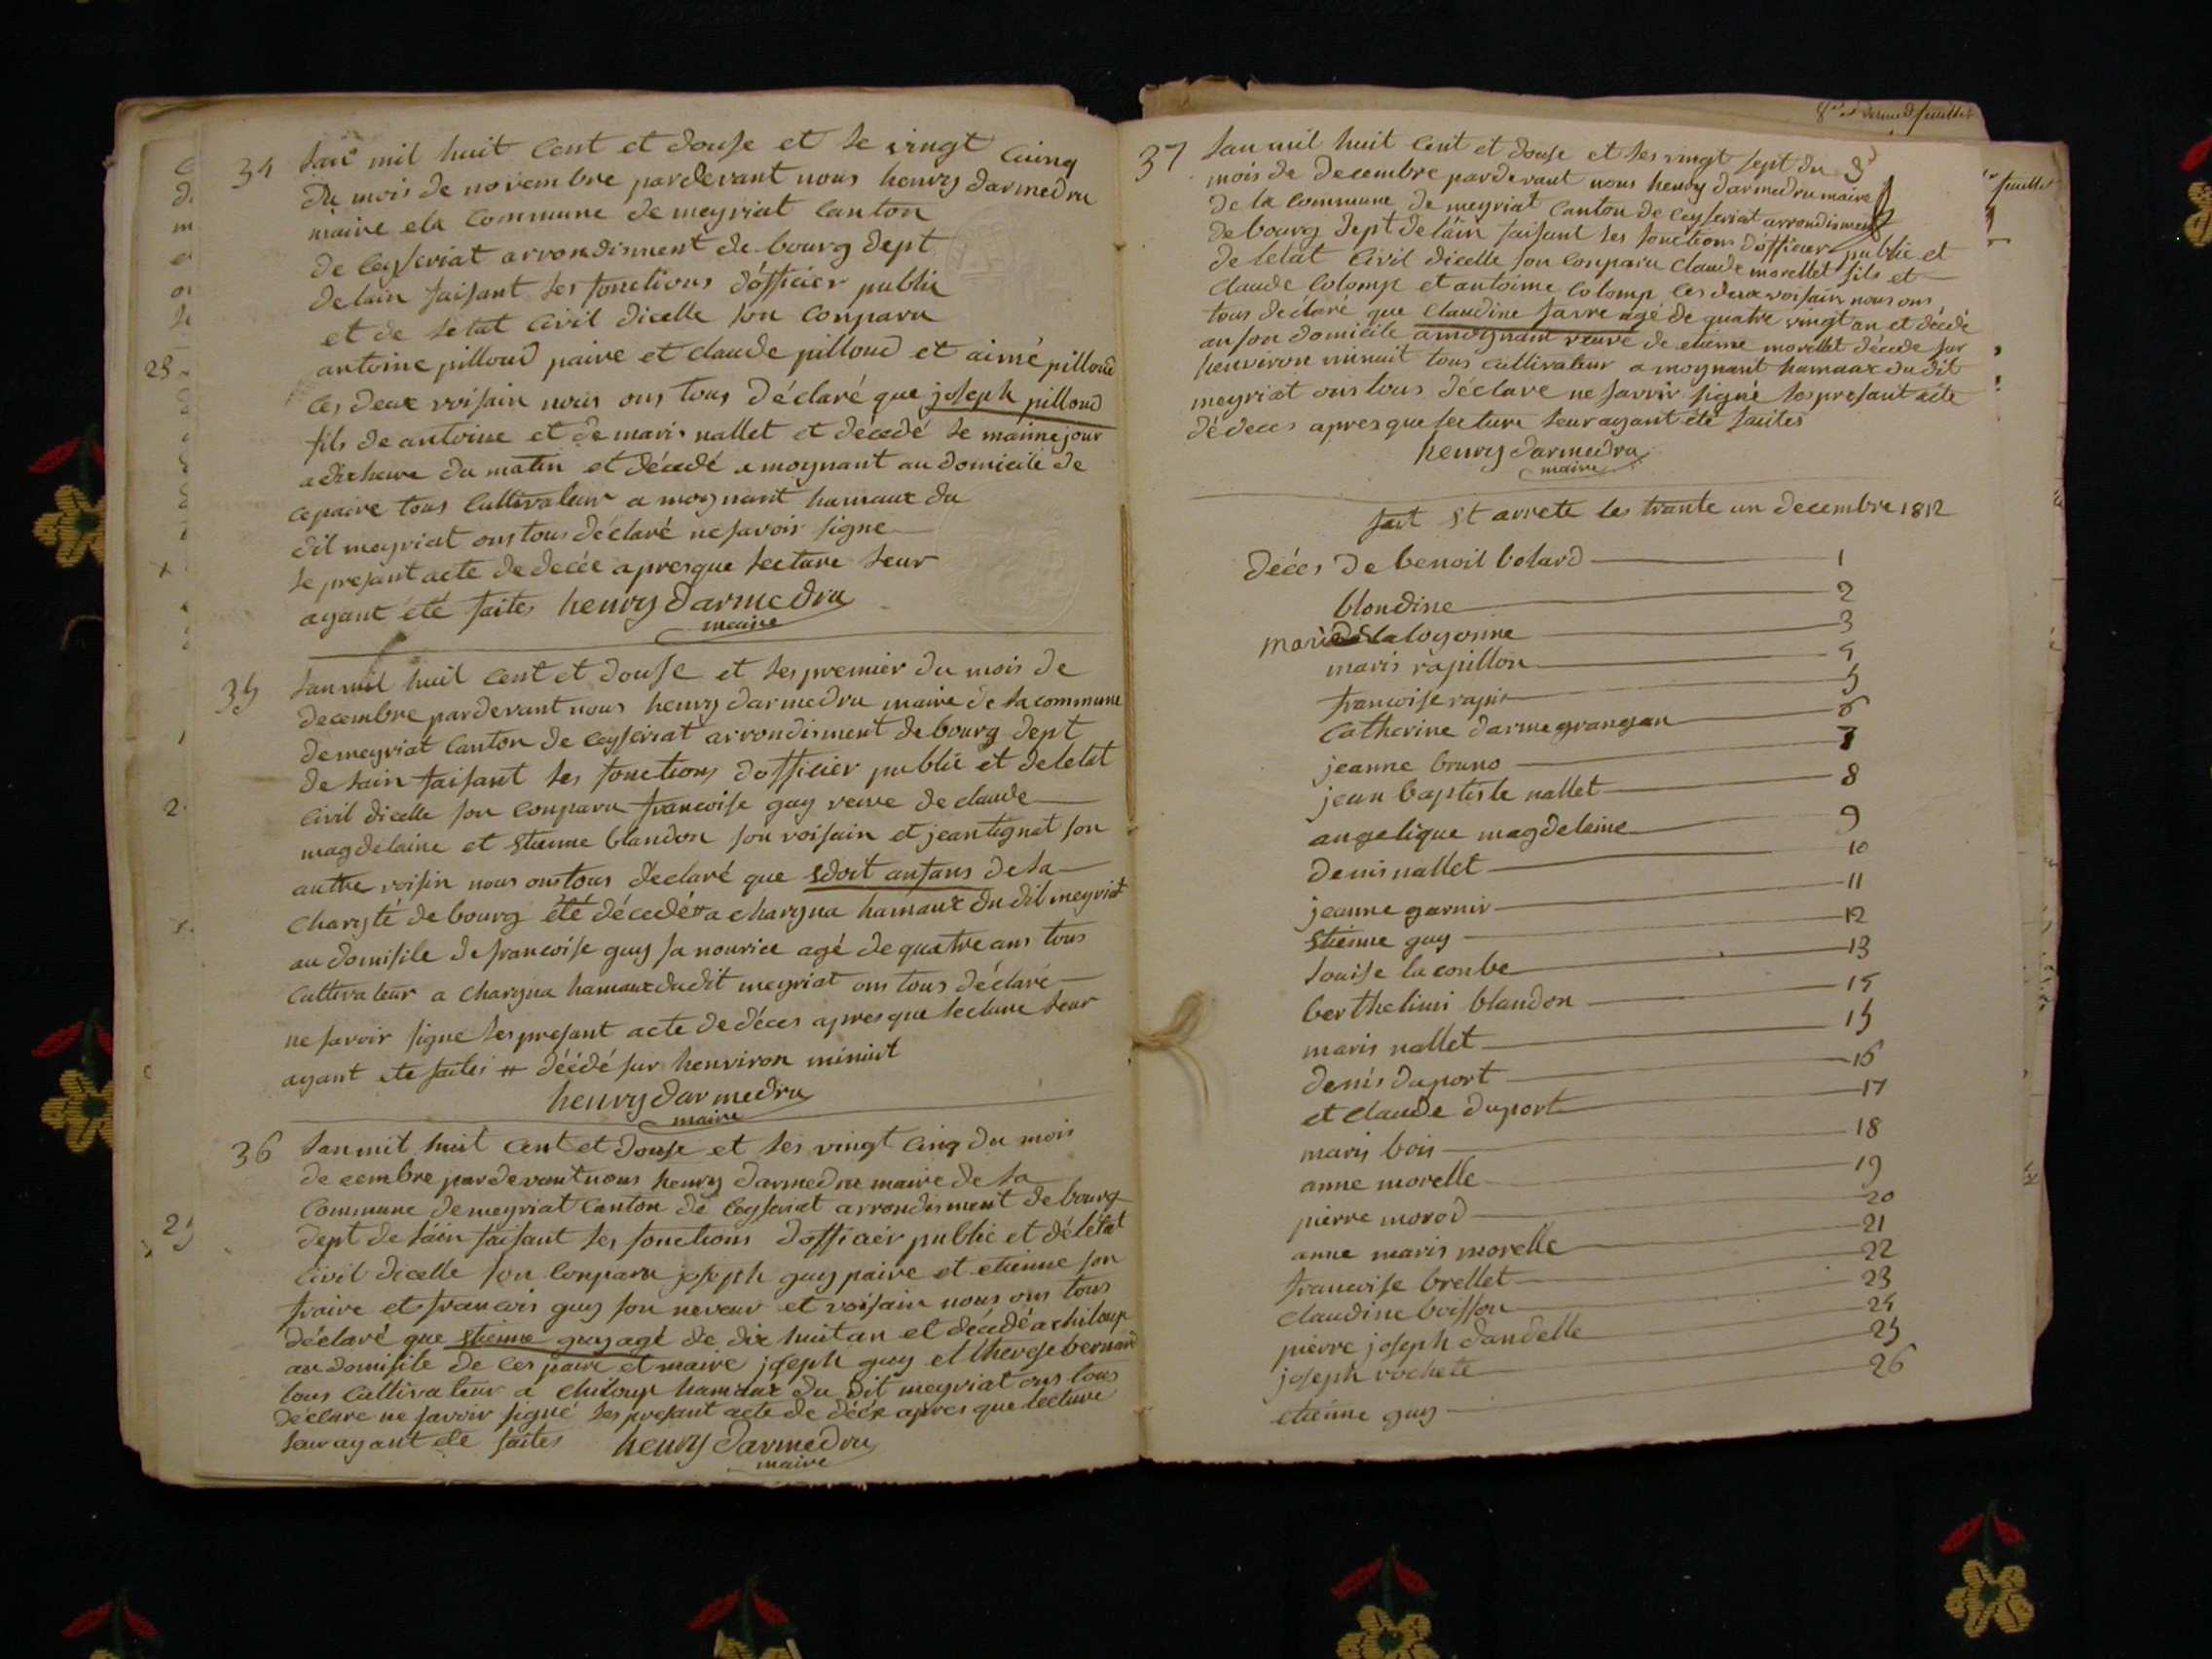 34
lan mil huit Cent et douse et le vingt Cuinq
du mois de novembre pardevant nous henry darmedru
maire ela Commune de meyriat Canton
de Ceyseriat arrondisment de bourg dept
de lain faisant les fonctions d'officier public
et de letat Civil dicelle son Conparu
antoine pilloud paire et claude pilloud et aimé pilloud
les deux voisain nous ons tous déclaré que joseph pilloud
fils de antoine et de maris nallet et décedé le maime jour
a dix heure du matin et décedé a moynant au domicile de
ce paire tous Cultivateur a moynant hamaux du
dit meyriat ons tous déclaré ne savoir signe
le presant acte de decée apresque lecture leur
ayant été faites henry darmedru
maire
35
lan mil huit Cent et douse et les premier du mois de
decembre pardevant nous henry darmedru maire de la commune
de meyriat Canton de Ceyseriat arrondisment de bourg dept
de lain faisant les fonctions dofficier public et de letat
Civil dicelle son Conparu francoise guy veuve de claude
magdelaine et Etienne blandon son voisain et jean tignat son
authre voisin nous ons tous déclaré que edoit anfans de la
charyté de bourg été décedé # a chargna hamaux du dit meyriat
au domisile de francoise guy sa nourice agé de quatre ans tous
Cultivateur a chargna hamaux dudit meyriat ons tous déclaré
ne savoir signe les presant acte de déces apres que lecture leur
ayant ete faites # décédé sur henviron minuit
henry darmedru
maire
36
lan mil huit Cent et douse et les vingt Cinq du mois
de cembre pardevant nous henry darmedru maire de la
Commune de meyriat Canton de Ceyseriat arrondisment de bourg
dept de láin faisant les fonctions d'officier public et de létat
Civil dicelle son Conparu joseph guy paire et etienne son
fraire et francois guy son neveur et voisain nous ons tous
déclaré que Etienne guy agé de dix huit an et décedé a chiloup
au domisile de ces paire et maire joseph guy et therese bernard
tous Cultivateur a chiloup hamaux du dit meyriat ons tous
déclare ne savoir signé les presant acte de décéz apres que lecture
leur ayant ete faites henry darmedru
maire
8me et dernier feuillet
feuillet
37
lan mil huit Cent et douse et les vingt sept du
mois de decembre pardevant nous henry darmedru maire
de la Commune de meyriat Canton de Ceyseriat arrondisment
de bourg dept de láin faisant les fonctions d'officier public et
de letat Civil dicelle son Conparu claude morellet fils et
claude Colomp et antoine Colomp les deux voisain nous ons
tous déclaré que claudine favre agé de quatre vingt an et décedé
an son domicile a moynant veuve de etienne morellet décede sur
henviron minuit tous Cultivateur a moynant hamaux du dit
meyriat ons tous déclare ne savoir signé les presant acte
dé deces apres que lecture leur ayant été faites
henry darmedru
maire
fait et arrete les trante un decembre 1812
décés de benoit bolard 1
blondine 2
marie la loyonne 3
maris rapillon 4
francoise rapis 5
Catherine darmegrangean 6
jeanne bruno 7
jean baptiste nallet 8
angelique magdeleine 9
denis nallet 10
jeanne garnir 11
Etienne guy 12
louise la conbe 13
berthelimi blandon 14
maris nallet 15
denis duport 16
et claude duport 17
maris bois 18
anne morelle 19
pierre morod 20
anne maris morelle 21
francoise brellet 22
claudine boisson 23
pierre joseph dandelle 24
joseph rochete 25
etienne guy 26